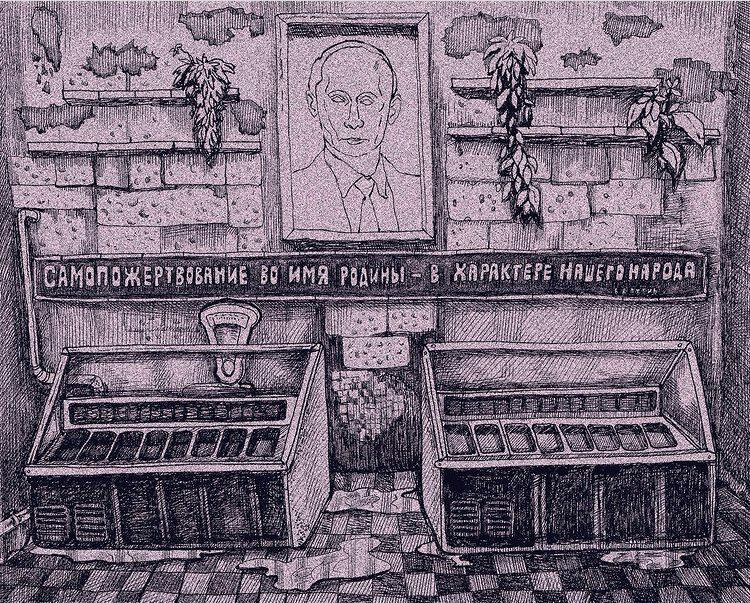 САМОПОЖЕРТВОВАНИЕ ВО ИМЯ РОДИНЫ - В ХАРАКТЕРЕ НАШЕГО НАРОДА